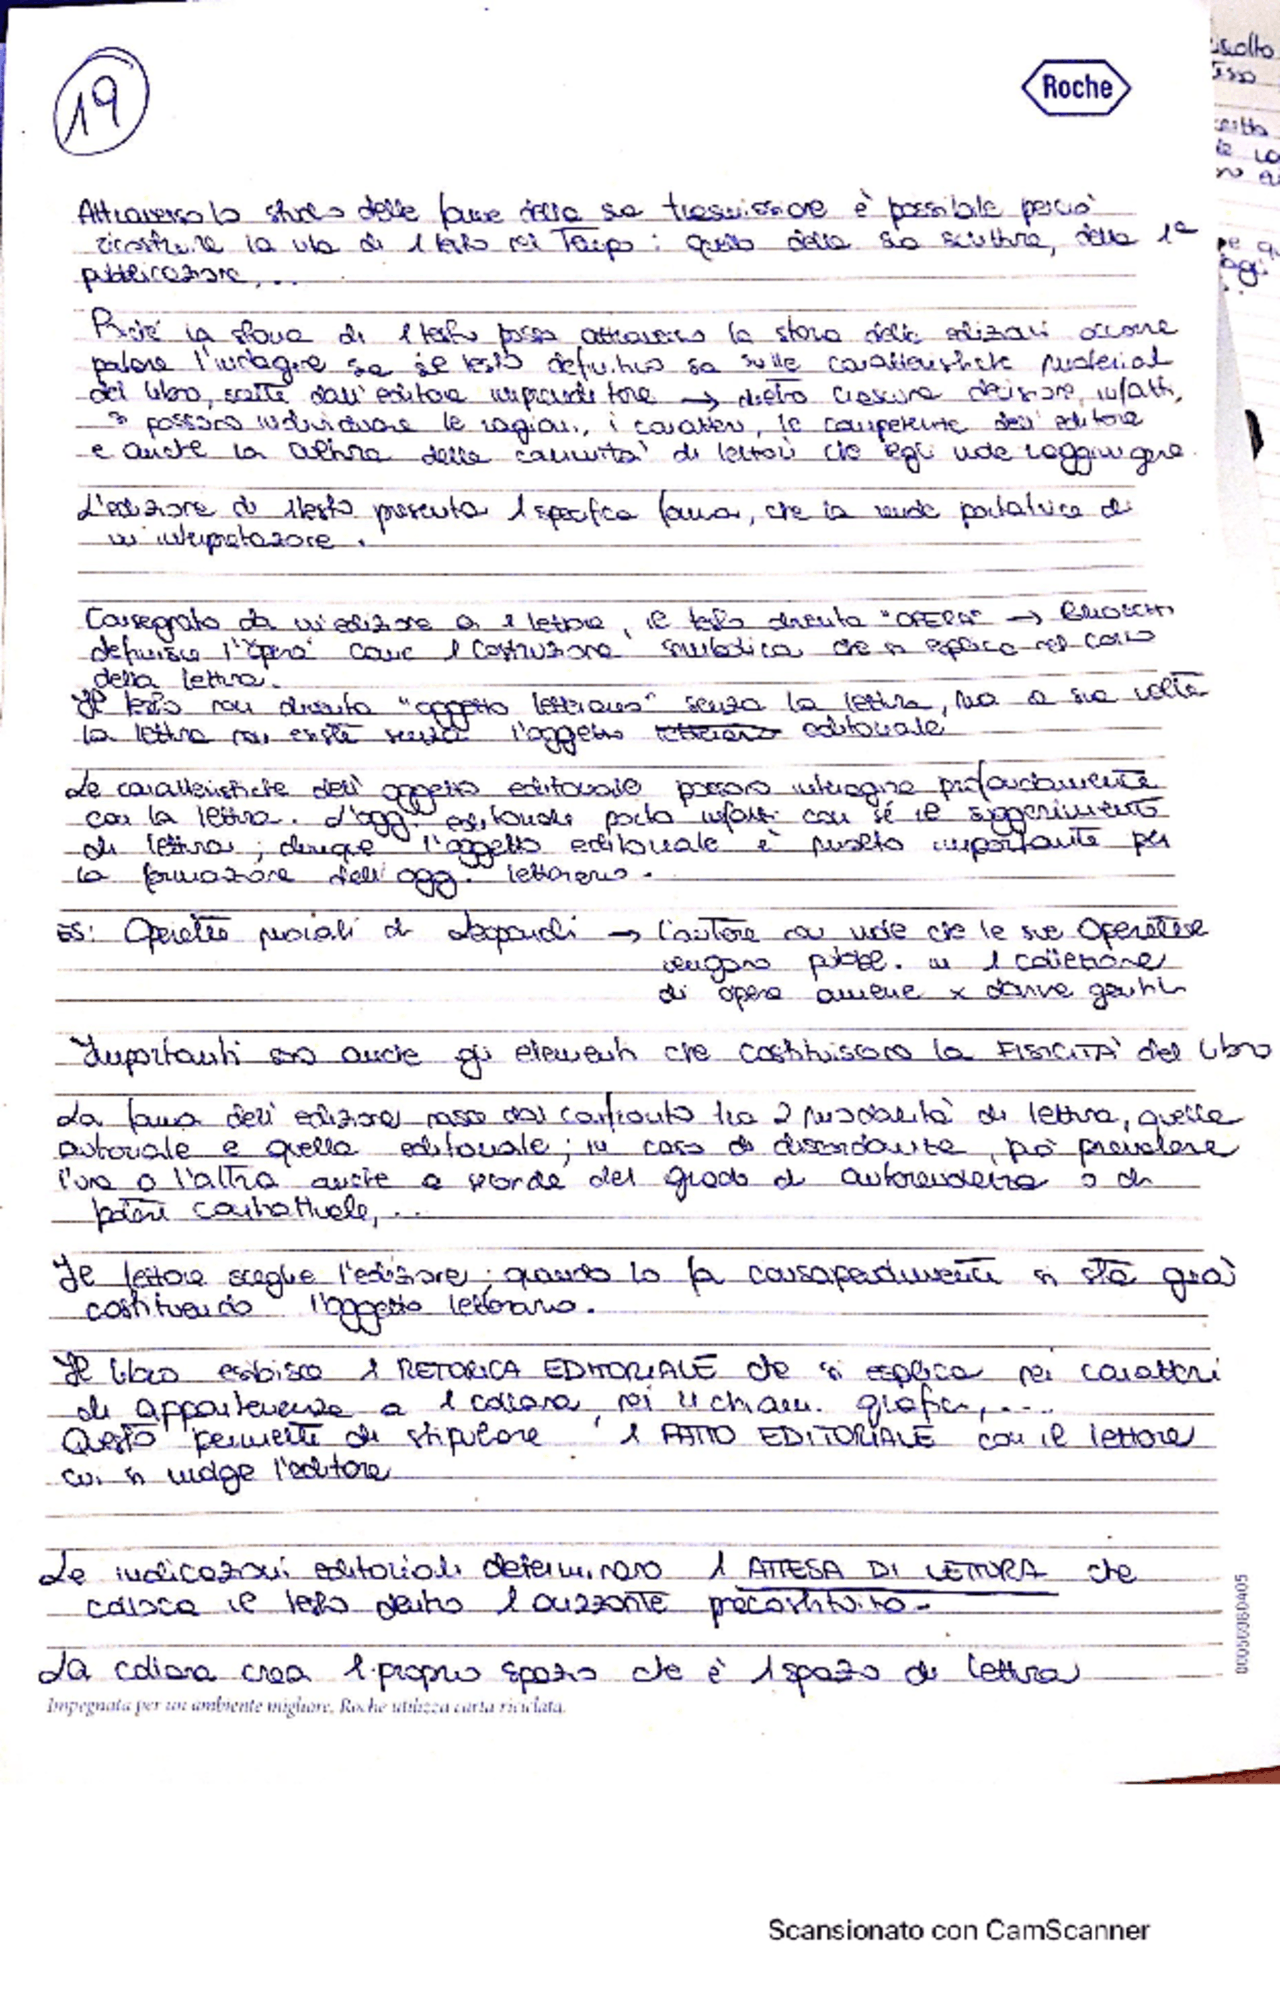 19
Roche
Attraverso lo studio delle forme della sua trasmissione è possibile perciò
ricostruire la vita di 1 testo nel Tempo: quello della sua scrittura, della 1ª
pubblicazione, ...
Poiché la storia di 1 testo passa attraverso la storia delle edizioni occorre
portare l'indagine sia se testo definitivo sia sulle caratteristiche materiali
del libro, scelte dall'editore imprenditore → dietro ciascuna decisione, infatti,
si possono individuare le ragioni, i caratteri, le competenze dell'editore
e anche la cultura della comunità di lettori che egli vuole raggiungere.
L'edizione di 1 testo presenta 1 specifica forma, che la rende portatrice di
un'interpretazione.
Consegnato da un'edizione a 1 lettore, il testo diventa "OPERA" →
definisce l'"opera" come 1 costruzione simbolica che si esplica nel corso
della lettura.
Il testo non diventa "oggetto letterario" senza la lettura, ma a sua volta
la lettura non esiste senza l'oggetto letterario editoriale
Le caratteristiche dell'oggetto editoriale possono interagire profondamente
con la lettura. L'ogg. editoriale porta infatti con sé il suggerimento
di lettura; dunque l'oggetto editoriale è molto importante per
la formazione dell'ogg. letterario.
ES: Operette morali di Leopardi → l'autore non vuole che le sue Operette
vengano pubbl. in 1 collezione
di opere amene x donne gentili
Importanti sono anche gli elementi che costituiscono la FISICITÀ del libro
La forma dell'edizione nasce dal confronto tra 2 modalità di lettura, quella
autoriale e quella editoriale; in caso di discordanza, può prevalere
l'una o l'altra anche a seconda del grado di autorevolezza o di
potere contrattuale, ...
Il lettore sceglie l'edizione; quando lo fa consapevolmente si sta già
costituendo l'oggetto letterario.
Il libro esibisce 1 RETORICA EDITORIALE che si esplica nei caratteri
di appartenenza a 1 collana, nei richiami grafici, ...
Questo permette di stipulare 1 PATTO EDITORIALE con il lettore
cui si rivolge l'editore
Le indicazioni editoriali determinano 1 ATTESA DI LETTURA che
colloca il testo dentro 1 orizzonte precostituito.
La collana crea 1 proprio spazio che è 1 spazio di lettura
Impegnata per un ambiente migliore, Roche utilizza carta riciclata.
00050360405
Scansionato con CamScanner